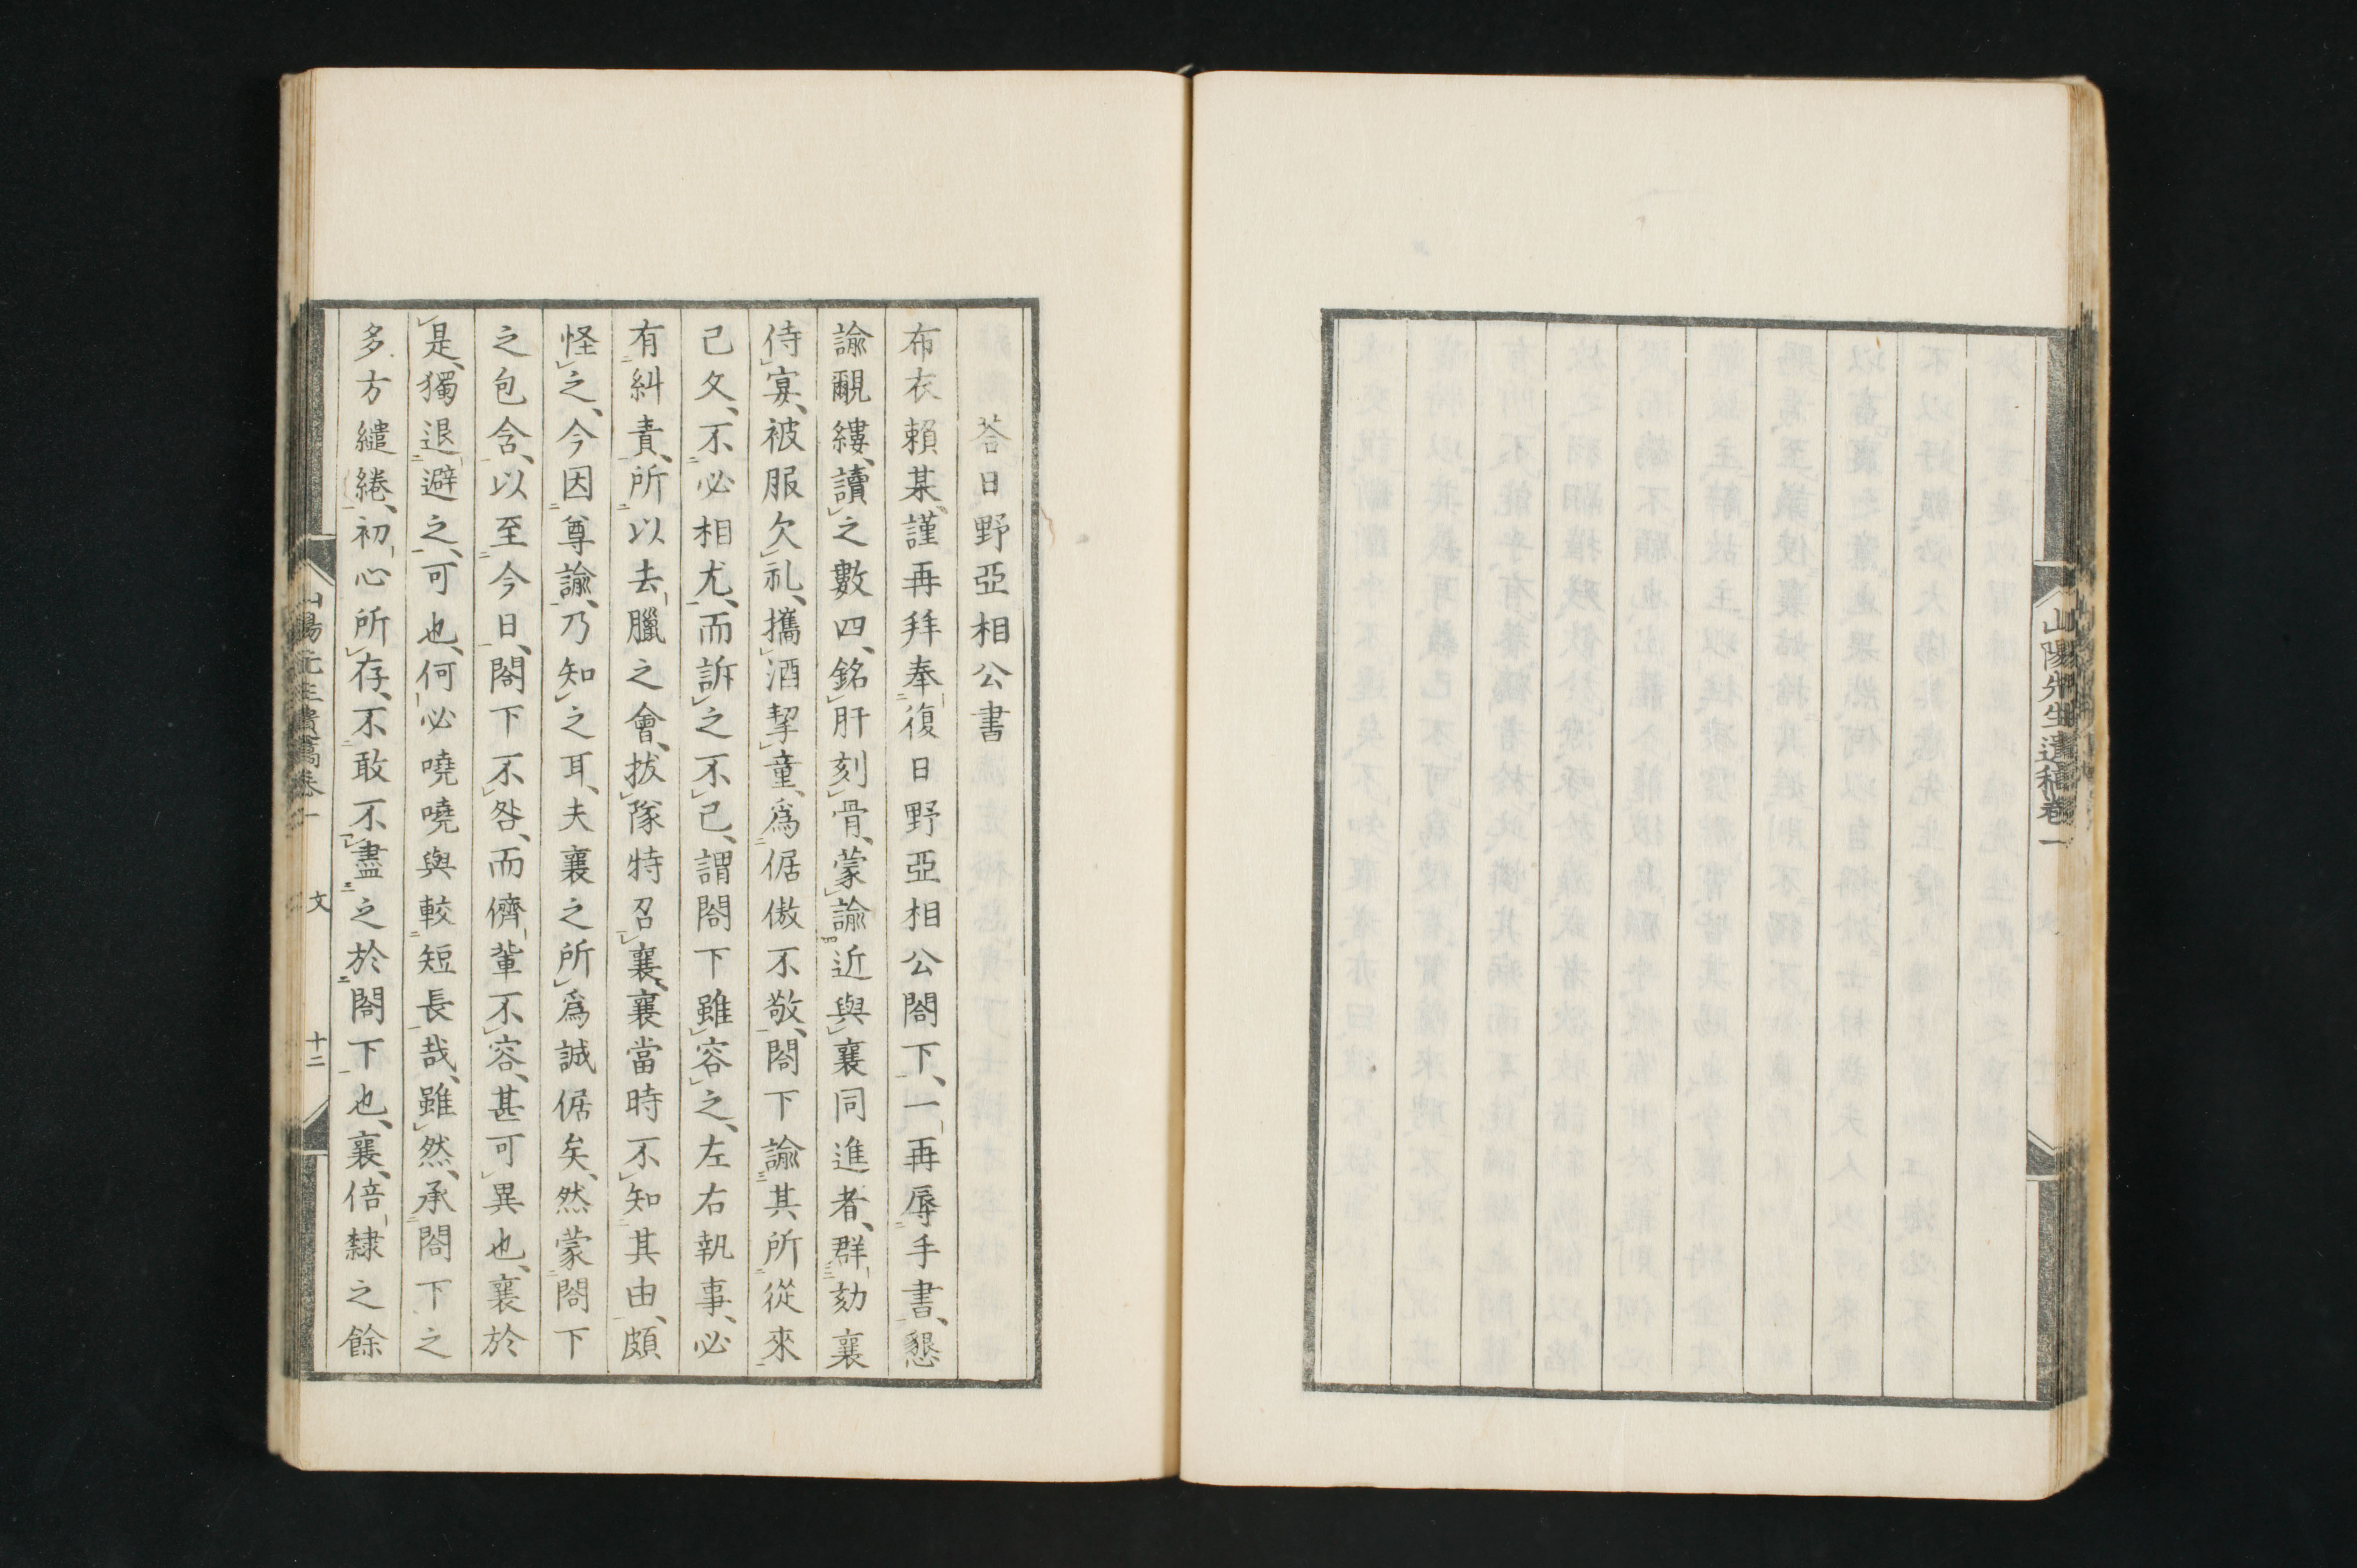 山陽先生遺稿卷一
荅日野亞相公書
布衣賴某、謹再拜奉復日野亞相公閤下、一再辱手書、懇
諭覼縷、讀之數四、銘肝刻骨、蒙諭近與襄同進者、群劾襄
侍宴、被服欠礼、攜酒挈童、爲倨傲不敬、閤下諭其所從來
已久、不必相尤、而訴之不已、謂閤下雖容之、左右執事、必
有糾責、所以去臘之會、拔隊特召襄、襄當時不知其由、頗
怪之、今因尊諭、乃知之耳、夫襄之所爲誠倨矣、然蒙閤下
之包含、以至今日、閤下不咎、而儕輩不容、甚可異也、襄於
是、獨退避之、可也、何必嘵嘵與較短長哉、雖然、承閤下之
多方繾綣、初心所存、不敢不盡之於閤下也、襄、倍隸之餘
山陽先生遺稿卷一 文 十二